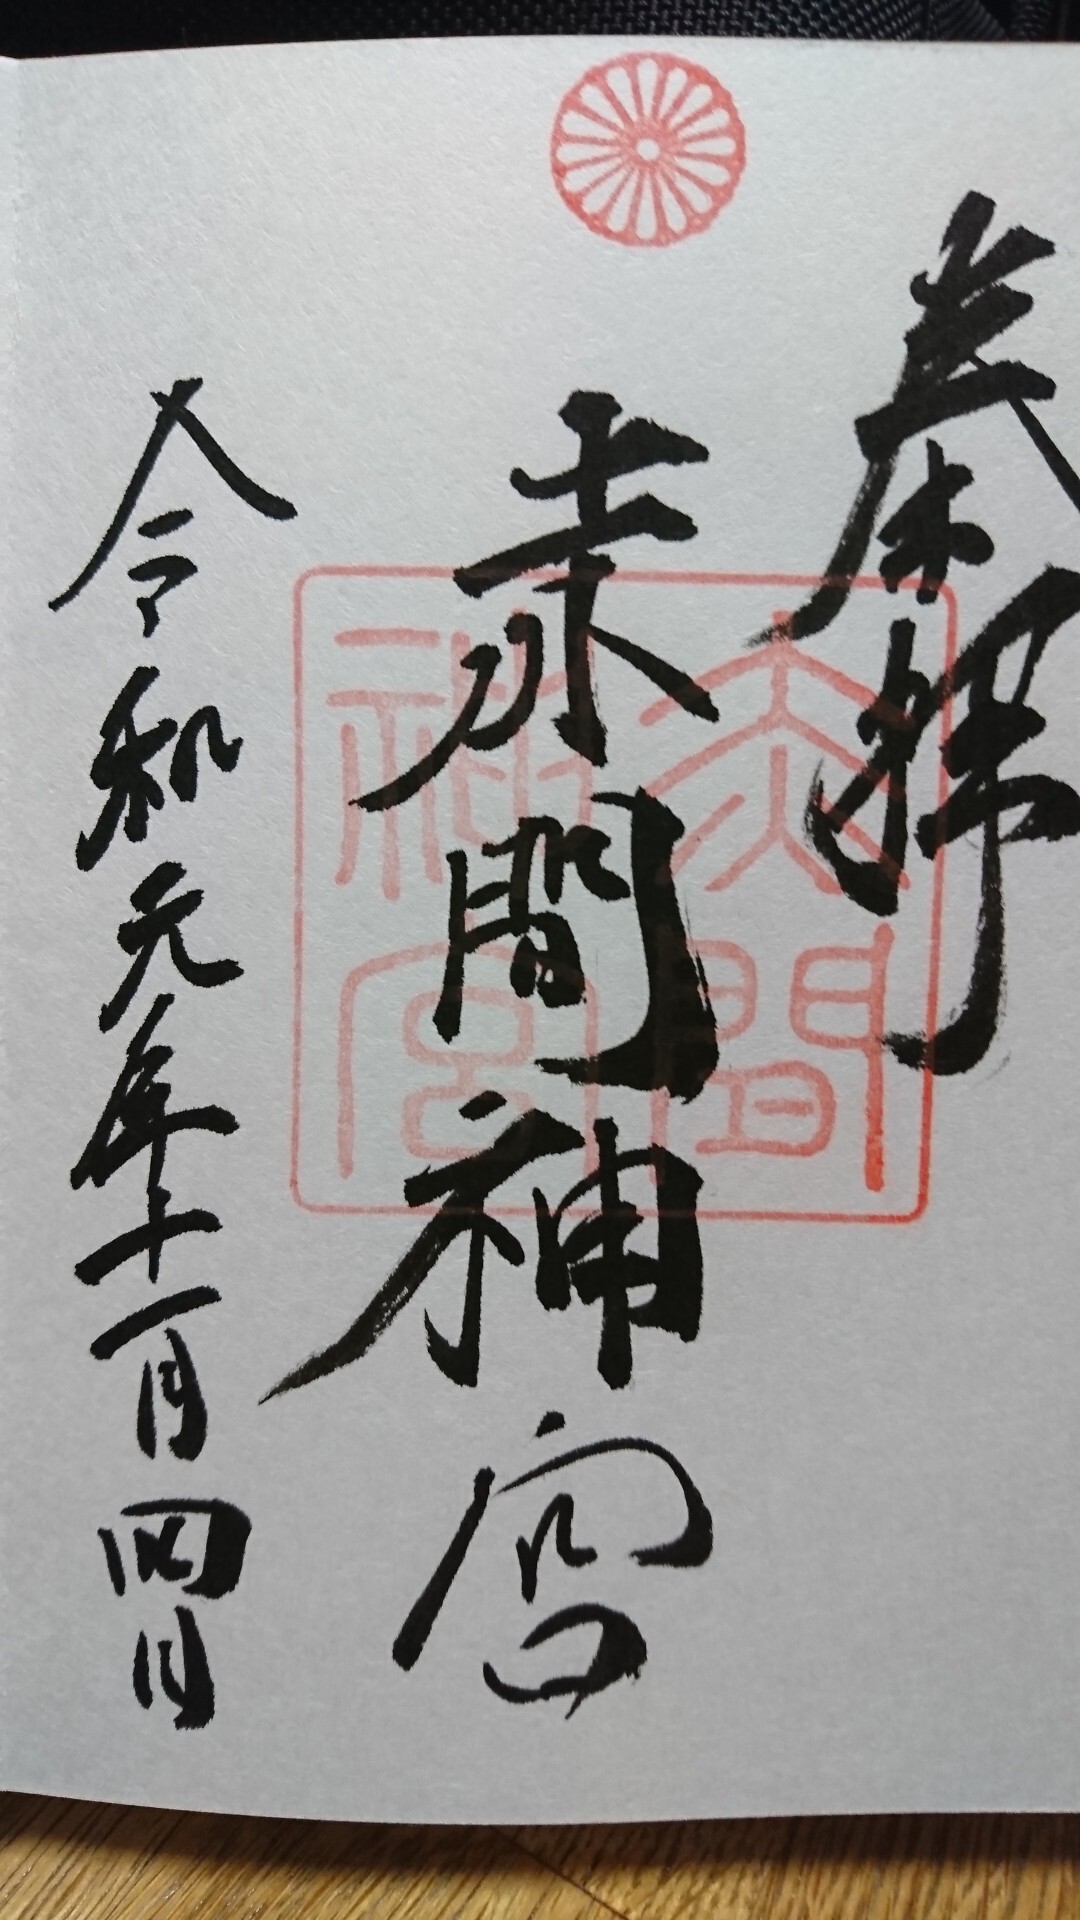 奉拝
赤間神宮
令和元年十一月四日
赤間
神宮